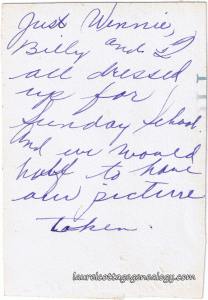 Just Winnie,
Billy and I
all dressed
up for
Sunday School.
And we would
haft to have
our picture
taken.
laurelcottagegenealogy.com